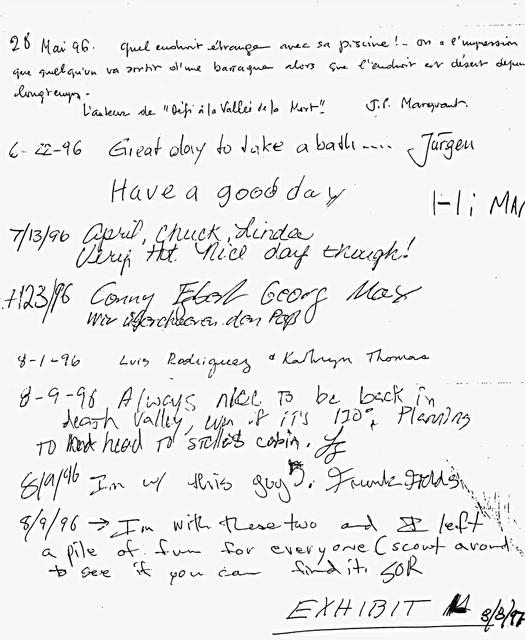 28 Mai 96. Quel endroit étrange avec sa piscine! - on a l'impression
que quelqu'un va sortir d'une barraque alors que l'endroit est désert depuis
longtemps.
L'auteur de "Défi à la Vallée de la Mort" J.P. Marquant.
6-22-96 Great day to take a bath.... Jürgen
Have a good day
Hi MAR
7/13/96 April, Chuck, Linda
Very Hot. Nice day though!
7/23/96 Conny Georg Max
Wir den Paß
8-1-96 Luis Rodriguez & Kathryn Thomas
8-9-96 Always nice To be back in
death Valley, even if it's 120°+ Planning
TO head TO cabin.
8/9/96 I'm w/ this guy. Frank
8/9/96 → I'm with these two and I left
a pile of fun for everyone (scout around
to see if you can find it. SOR
EXHIBIT 8/8/97